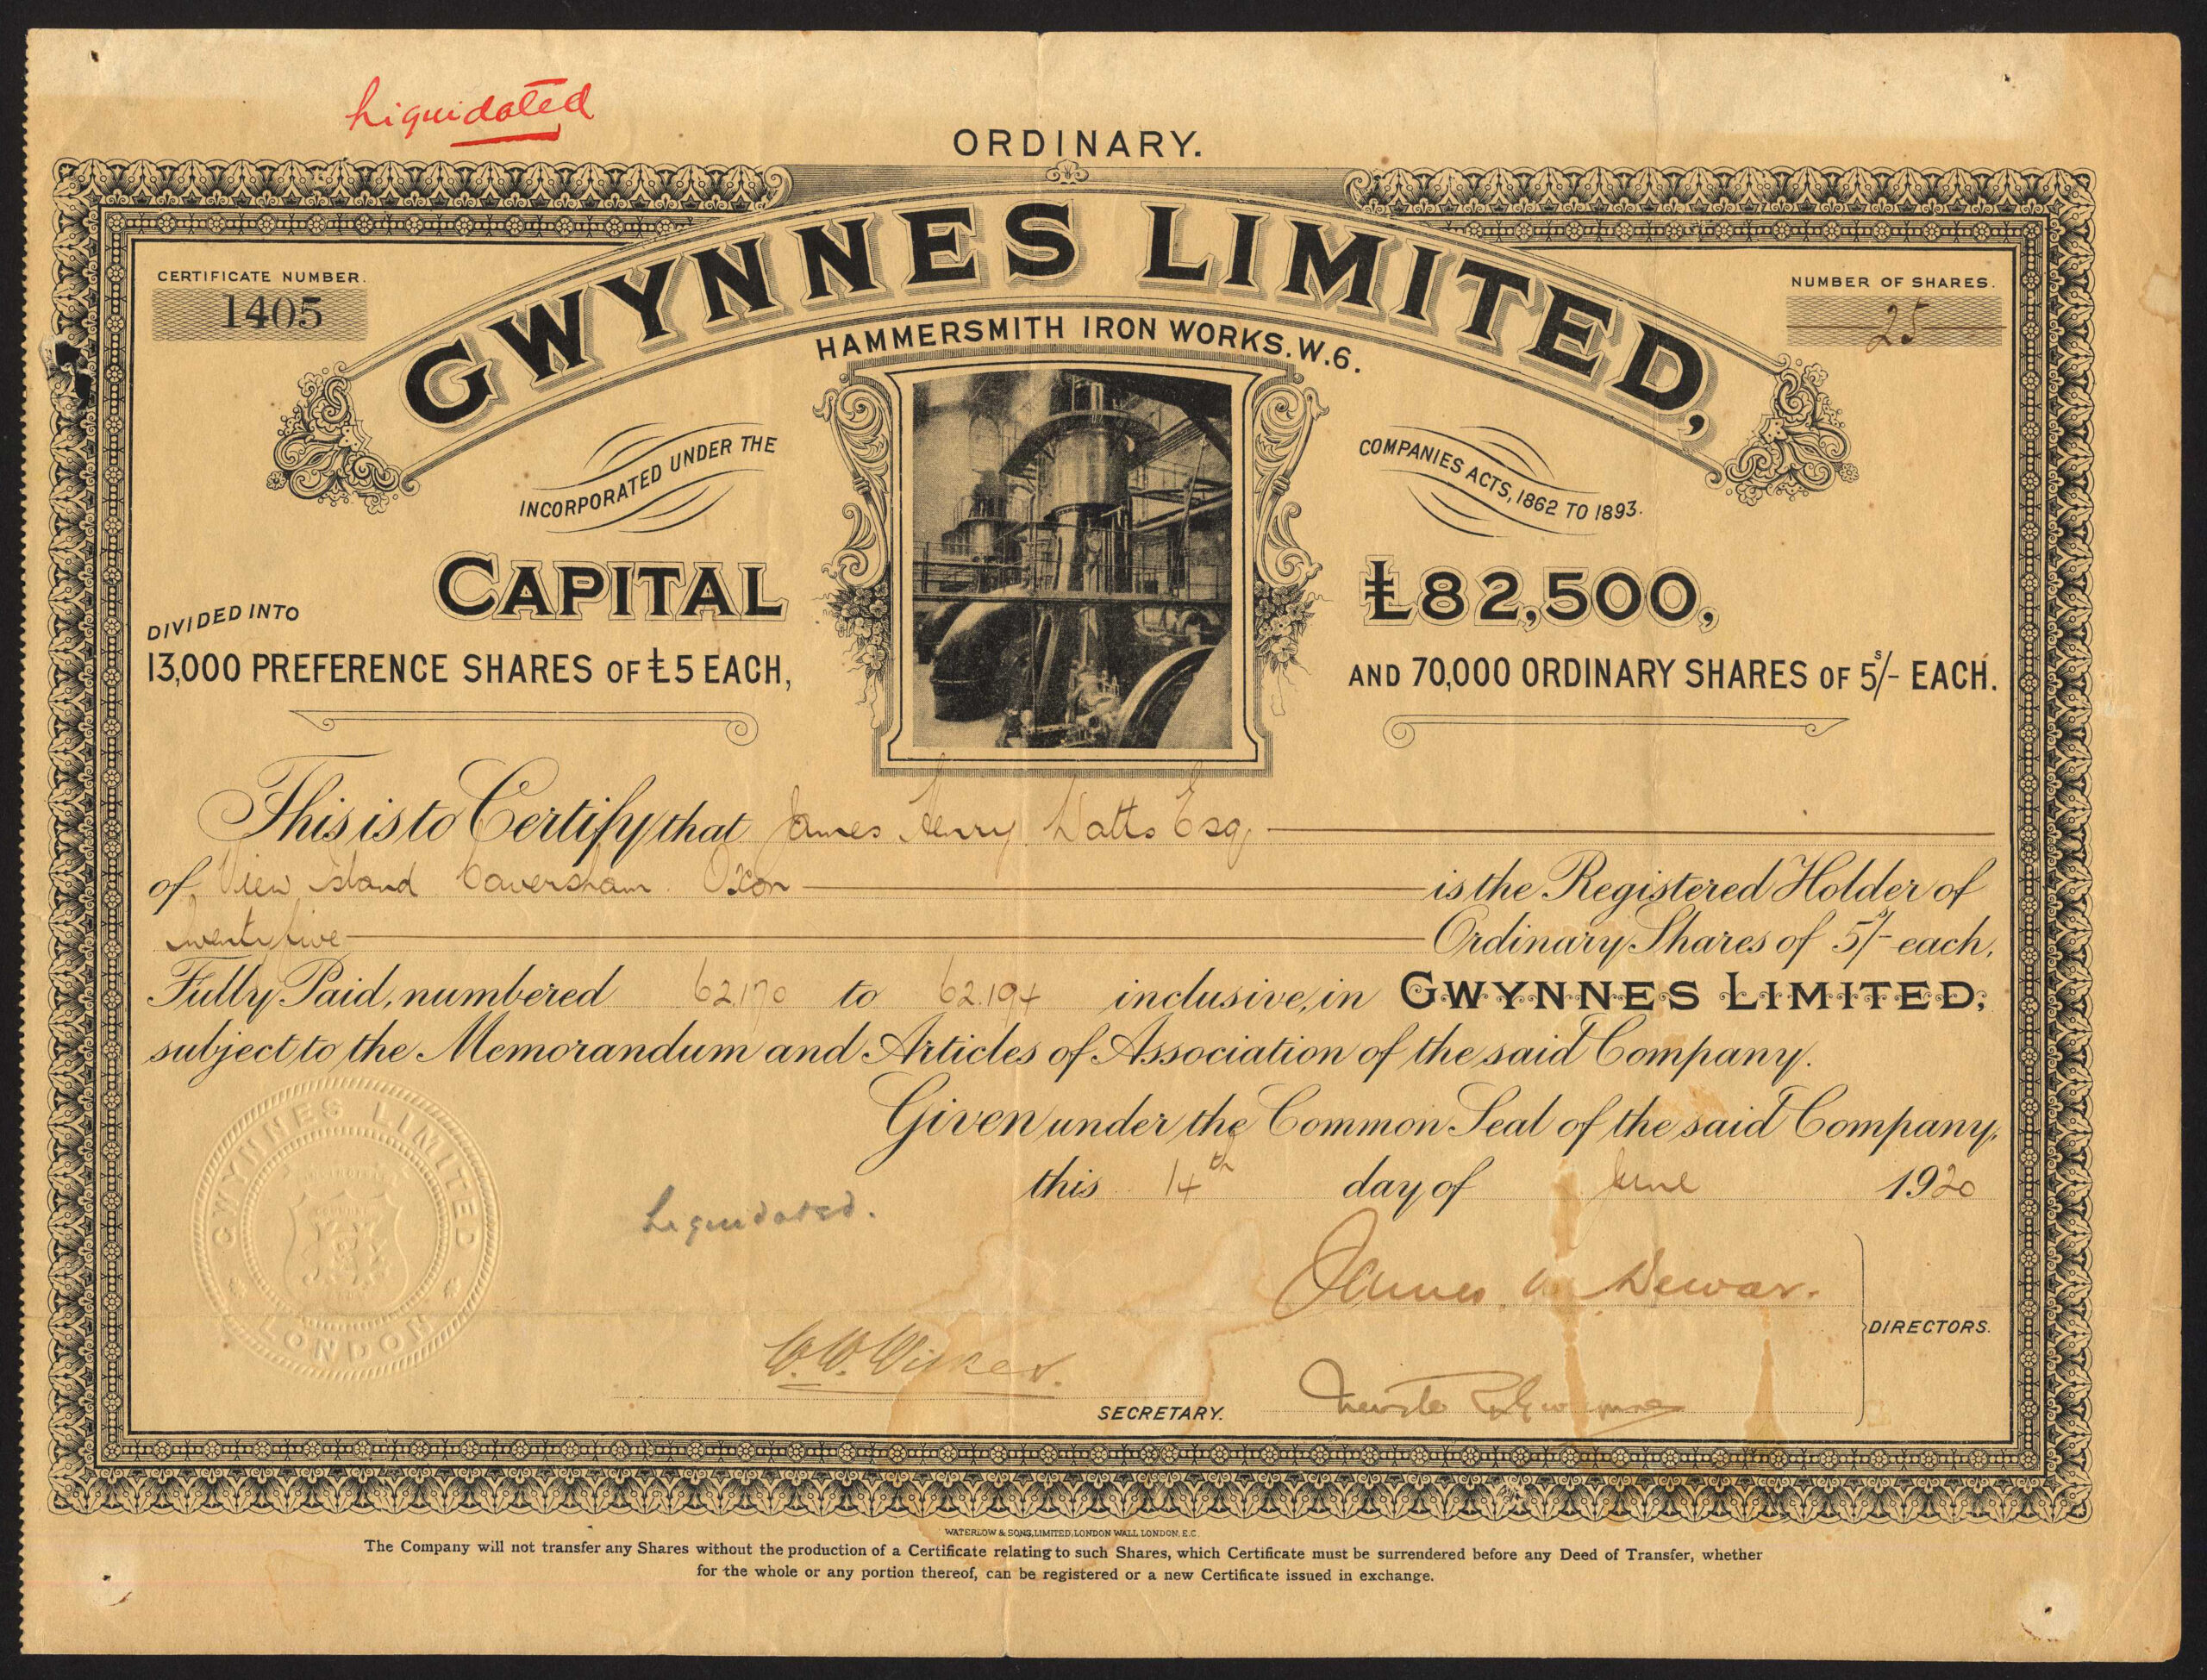 Liquidated
ORDINARY.
GWYNNES LIMITED,
HAMMERSMITH IRON WORKS. W.6.
CERTIFICATE NUMBER.
1405
NUMBER OF SHARES.
25
INCORPORATED UNDER THE
COMPANIES ACTS, 1862 TO 1893.
CAPITAL £82,500,
DIVIDED INTO
13,000 PREFERENCE SHARES OF £5 EACH,
AND 70,000 ORDINARY SHARES OF 5s/- EACH.
This is to Certify that James Henry Watts Esq,
of View Island Caversham. Oxon is the Registered Holder of
Twenty five Ordinary Shares of 5s/- each,
Fully Paid, numbered 62.170 to 62.194 inclusive, in GWYNNES LIMITED,
subject to the Memorandum and Articles of Association of the said Company.
Given under the Common Seal of the said Company,
this 14th day of June 1920
GWYNNES LIMITED
LONDON
Liquidated.
James Dewar.
DIRECTORS.
SECRETARY.
WATERLOW & SONS, LIMITED, LONDON WALL LONDON, E.C.
The Company will not transfer any Shares without the production of a Certificate relating to such Shares, which Certificate must be surrendered before any Deed of Transfer, whether
for the whole or any portion thereof, can be registered or a new Certificate issued in exchange.